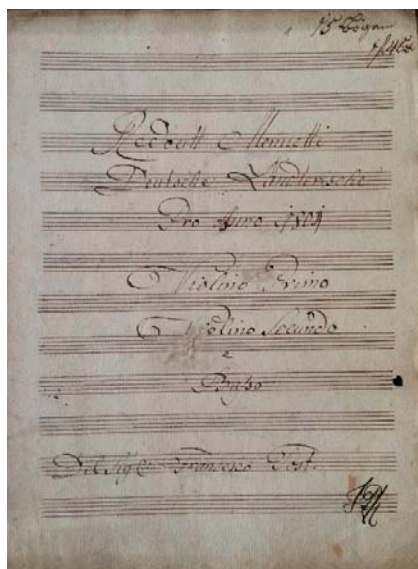 15 Bögen
Redoutt Menuetti
Deutsche Ländlerische
Pro Anno 1804
Violino Primo
Violino Secundo
e
Basso
Del Sig: Francesco Tost.